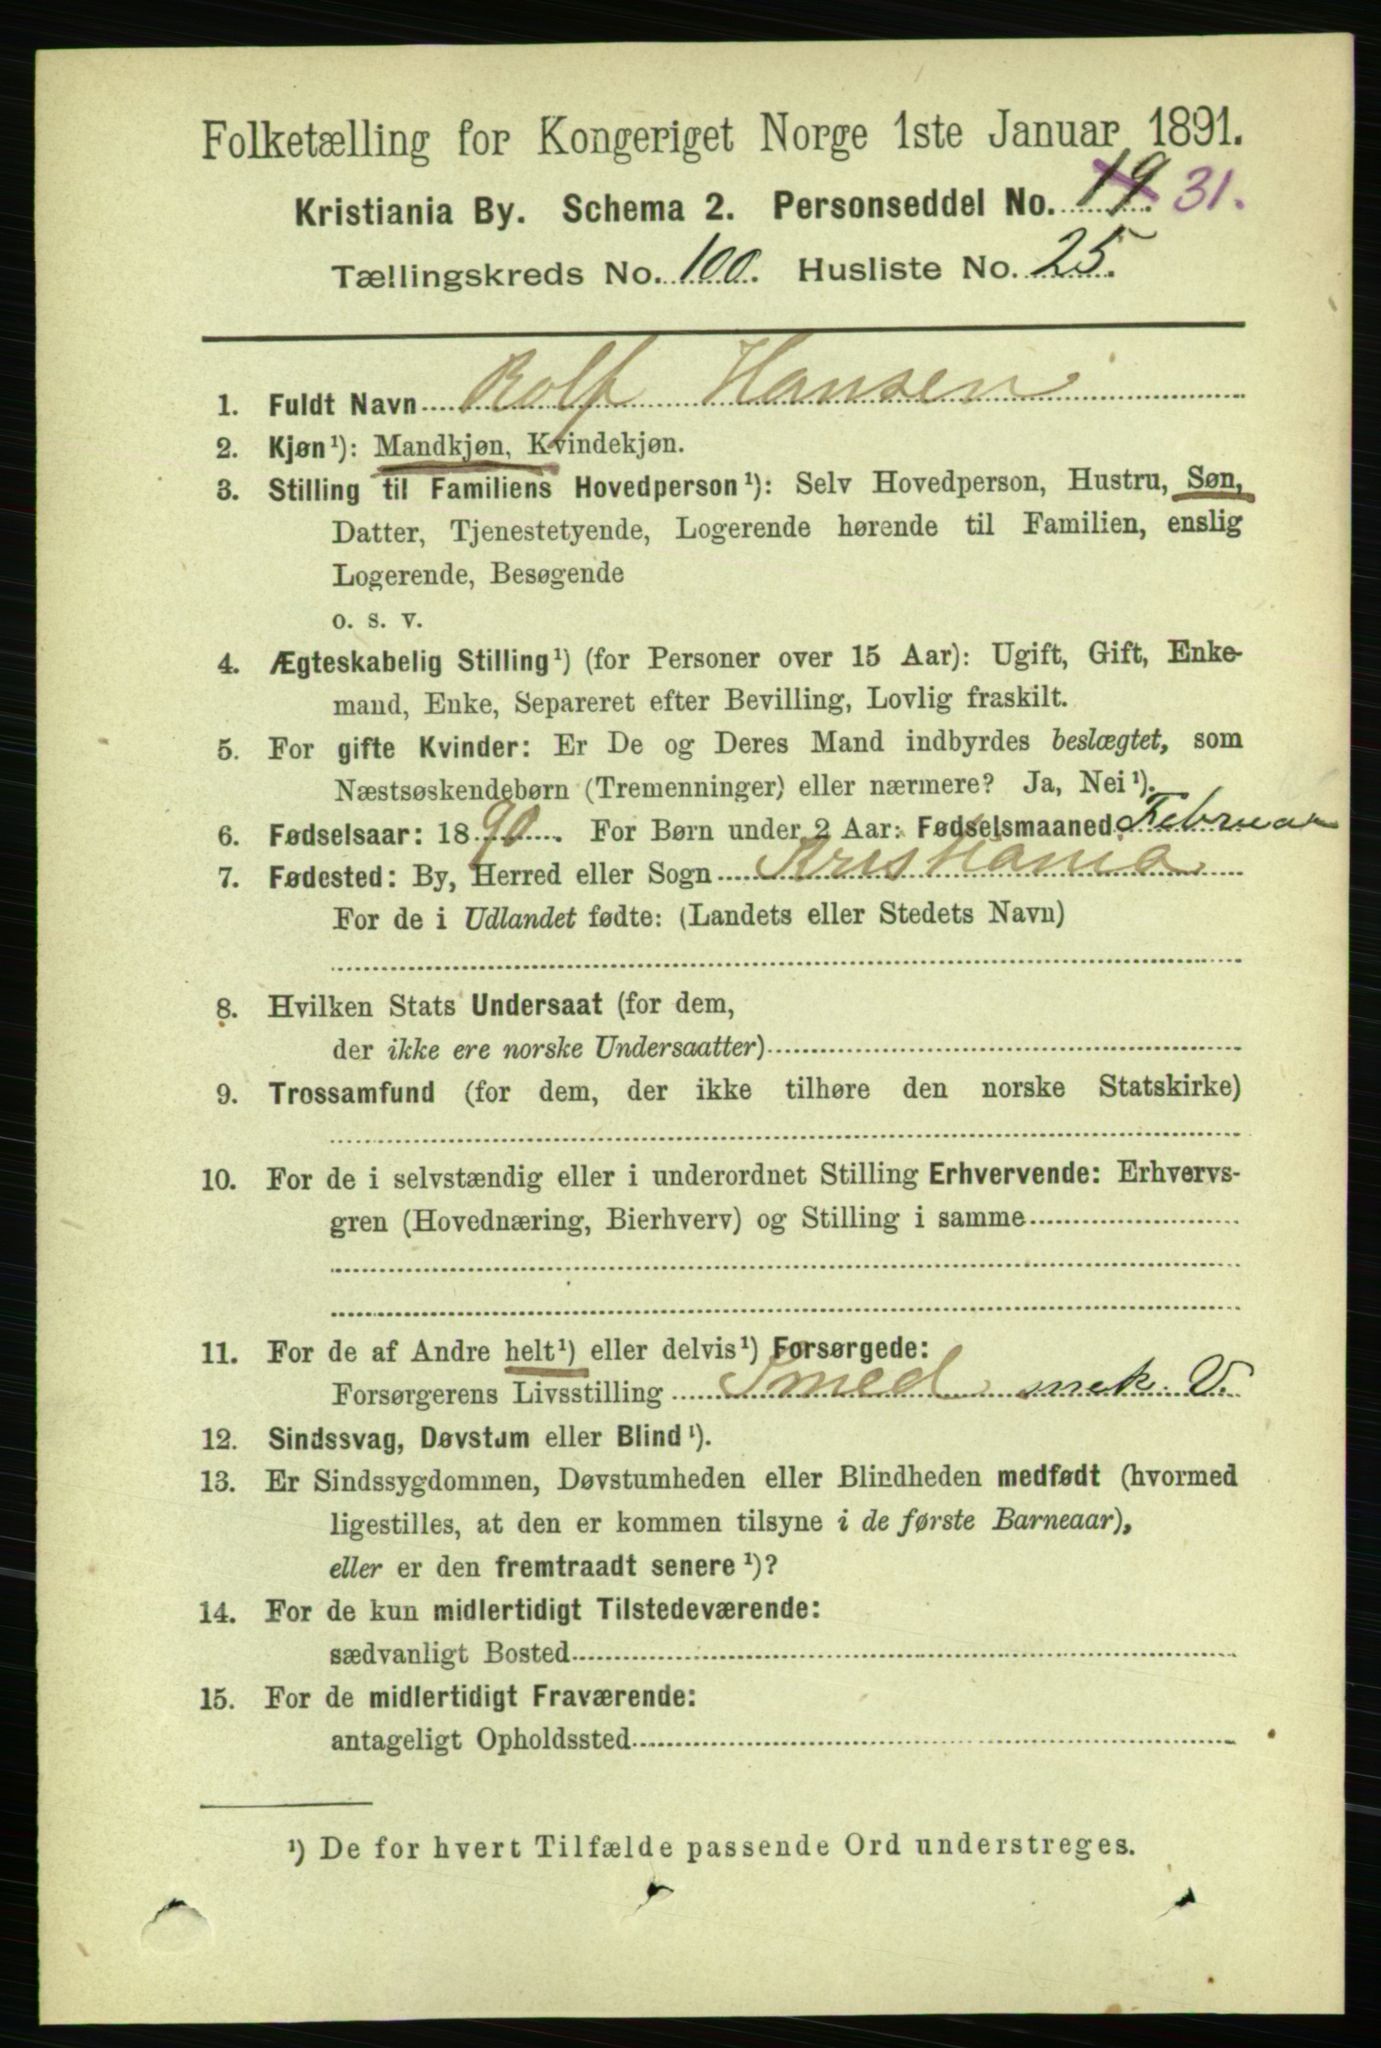 Folketælling for Kongeriget Norge 1ste Januar 1891.
Kristiania By. Schema 2. Personseddel No. 19. 31.
Tællingskreds No. 100. Husliste No. 25.
1. Fuldt Navn Rolf Hansen
2. Kjøn¹): Mandkjøn, Kvindekjøn.
3. Stilling til Familiens Hovedperson¹): Selv Hovedperson, Hustru, Søn,
Datter, Tjenestetyende, Logerende hørende til Familien, enslig
Logerende, Besøgende
o. s. v.
4. Ægteskabelig Stilling¹) (for Personer over 15 Aar): Ugift, Gift, Enke-
mand, Enke, Separeret efter Bevilling, Lovlig fraskilt.
5. For gifte Kvinder: Er De og Deres Mand indbyrdes beslægtet, som
Næstsøskendebørn (Tremenninger) eller nærmere? Ja, Nei¹).
6. Fødselsaar: 1890. For Børn under 2 Aar: Fødselsmaaned: Februar
7. Fødested: By, Herred eller Sogn Kristiania
For de i Udlandet fødte: (Landets eller Stedets Navn)
8. Hvilken Stats Undersaat (for dem,
der ikke ere norske Undersaatter)
9. Trossamfund (for dem, der ikke tilhøre den norske Statskirke)
10. For de i selvstændig eller i underordnet Stilling Erhvervende: Erhvervs-
gren (Hovednæring, Bierhverv) og Stilling i samme
11. For de af Andre helt¹) eller delvis¹) Forsørgede:
Forsørgerens Livsstilling Smed mek. V.
12. Sindssvag, Døvstum eller Blind¹).
13. Er Sindssygdommen, Døvstumheden eller Blindheden medfødt (hvormed
ligestilles, at den er kommen tilsyne i de første Barneaar),
eller er den fremtraadt senere¹)?
14. For de kun midlertidigt Tilstedeværende:
sædvanligt Bosted
15. For de midlertidigt Fraværende:
antageligt Opholdssted
¹) De for hvert Tilfælde passende Ord understreges.